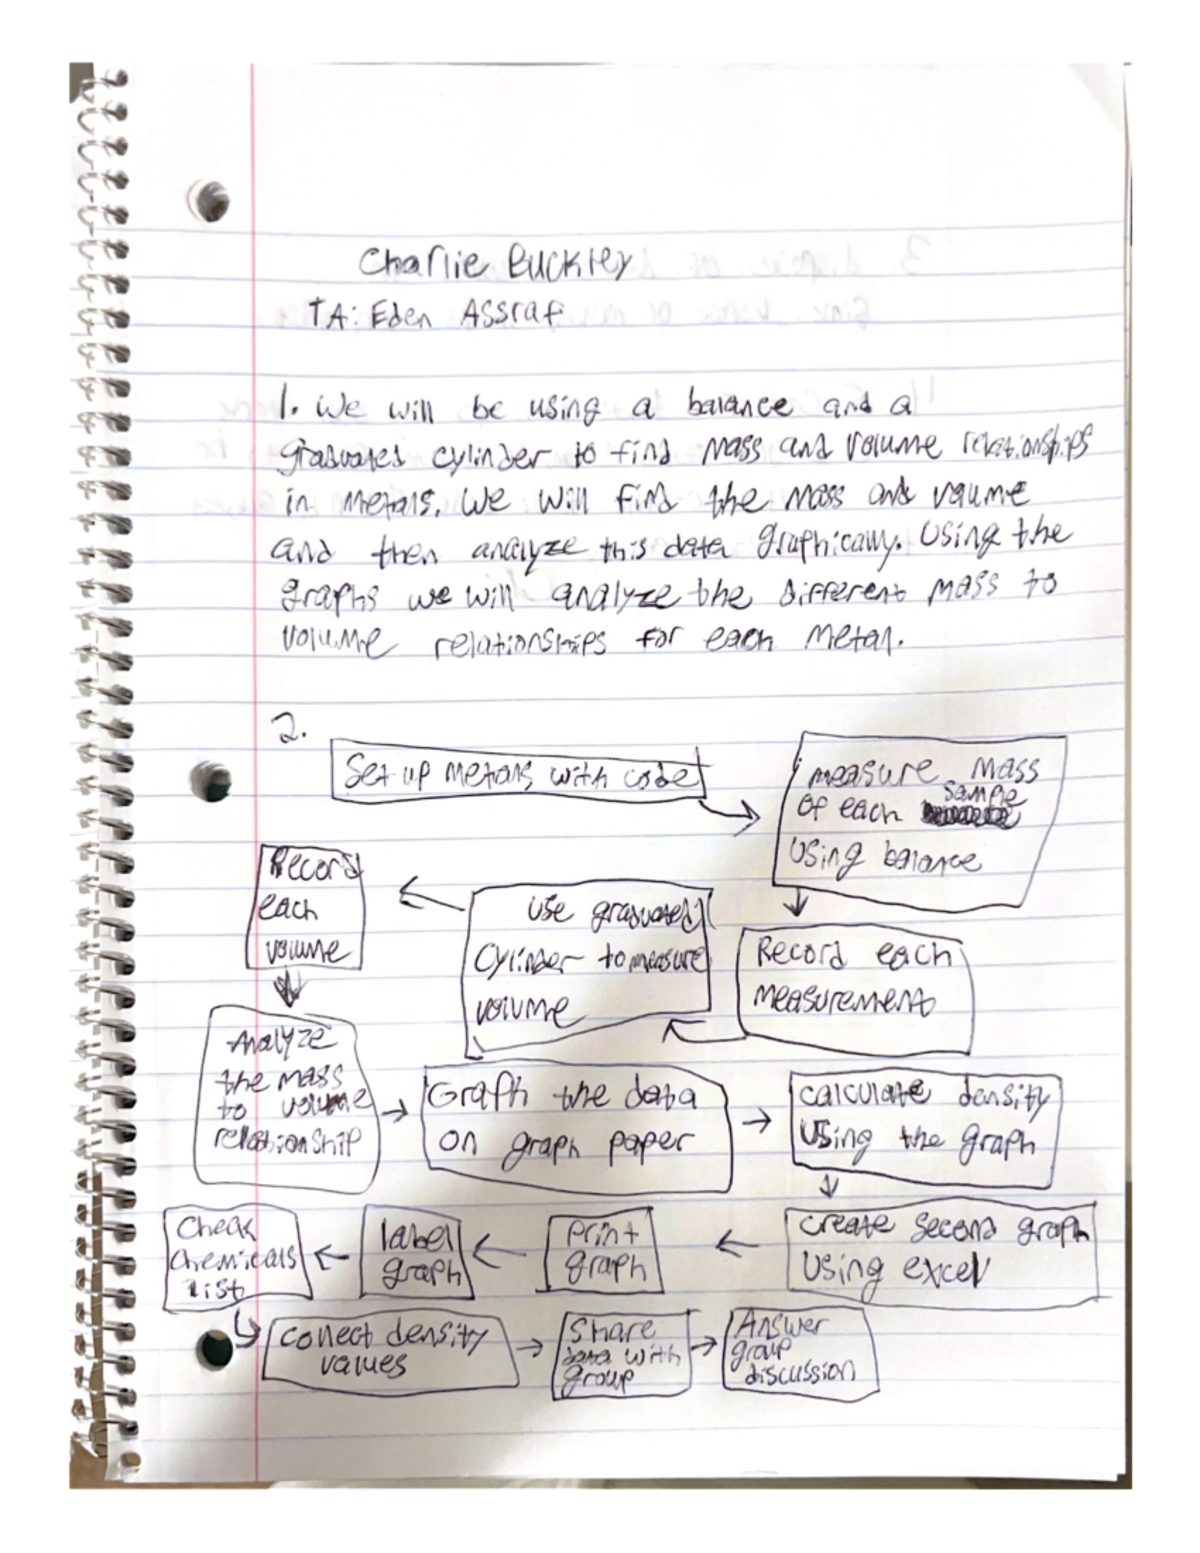 Charlie Buckley
TA: Eden Assraf
1. We will be using a balance and a
graduated cylinder to find mass and volume relationships
in metals. We will find the mass and volume
and then analyze this data graphically. Using the
graphs we will analyze the different mass to
volume relationships for each metal.
2.
Set up metals with code
measure mass
of each sample
using balance
Record each
measurement
use graduated
cylinder to measure
volume
Record
each
volume
Analyze
the mass
to volume
relationship
Graph the data
on graph paper
calculate density
using the graph
create second graph
using excel
print
graph
label
graph
Check
chemicals
list
collect density
values
Share
data with
group
Answer
group
discussion